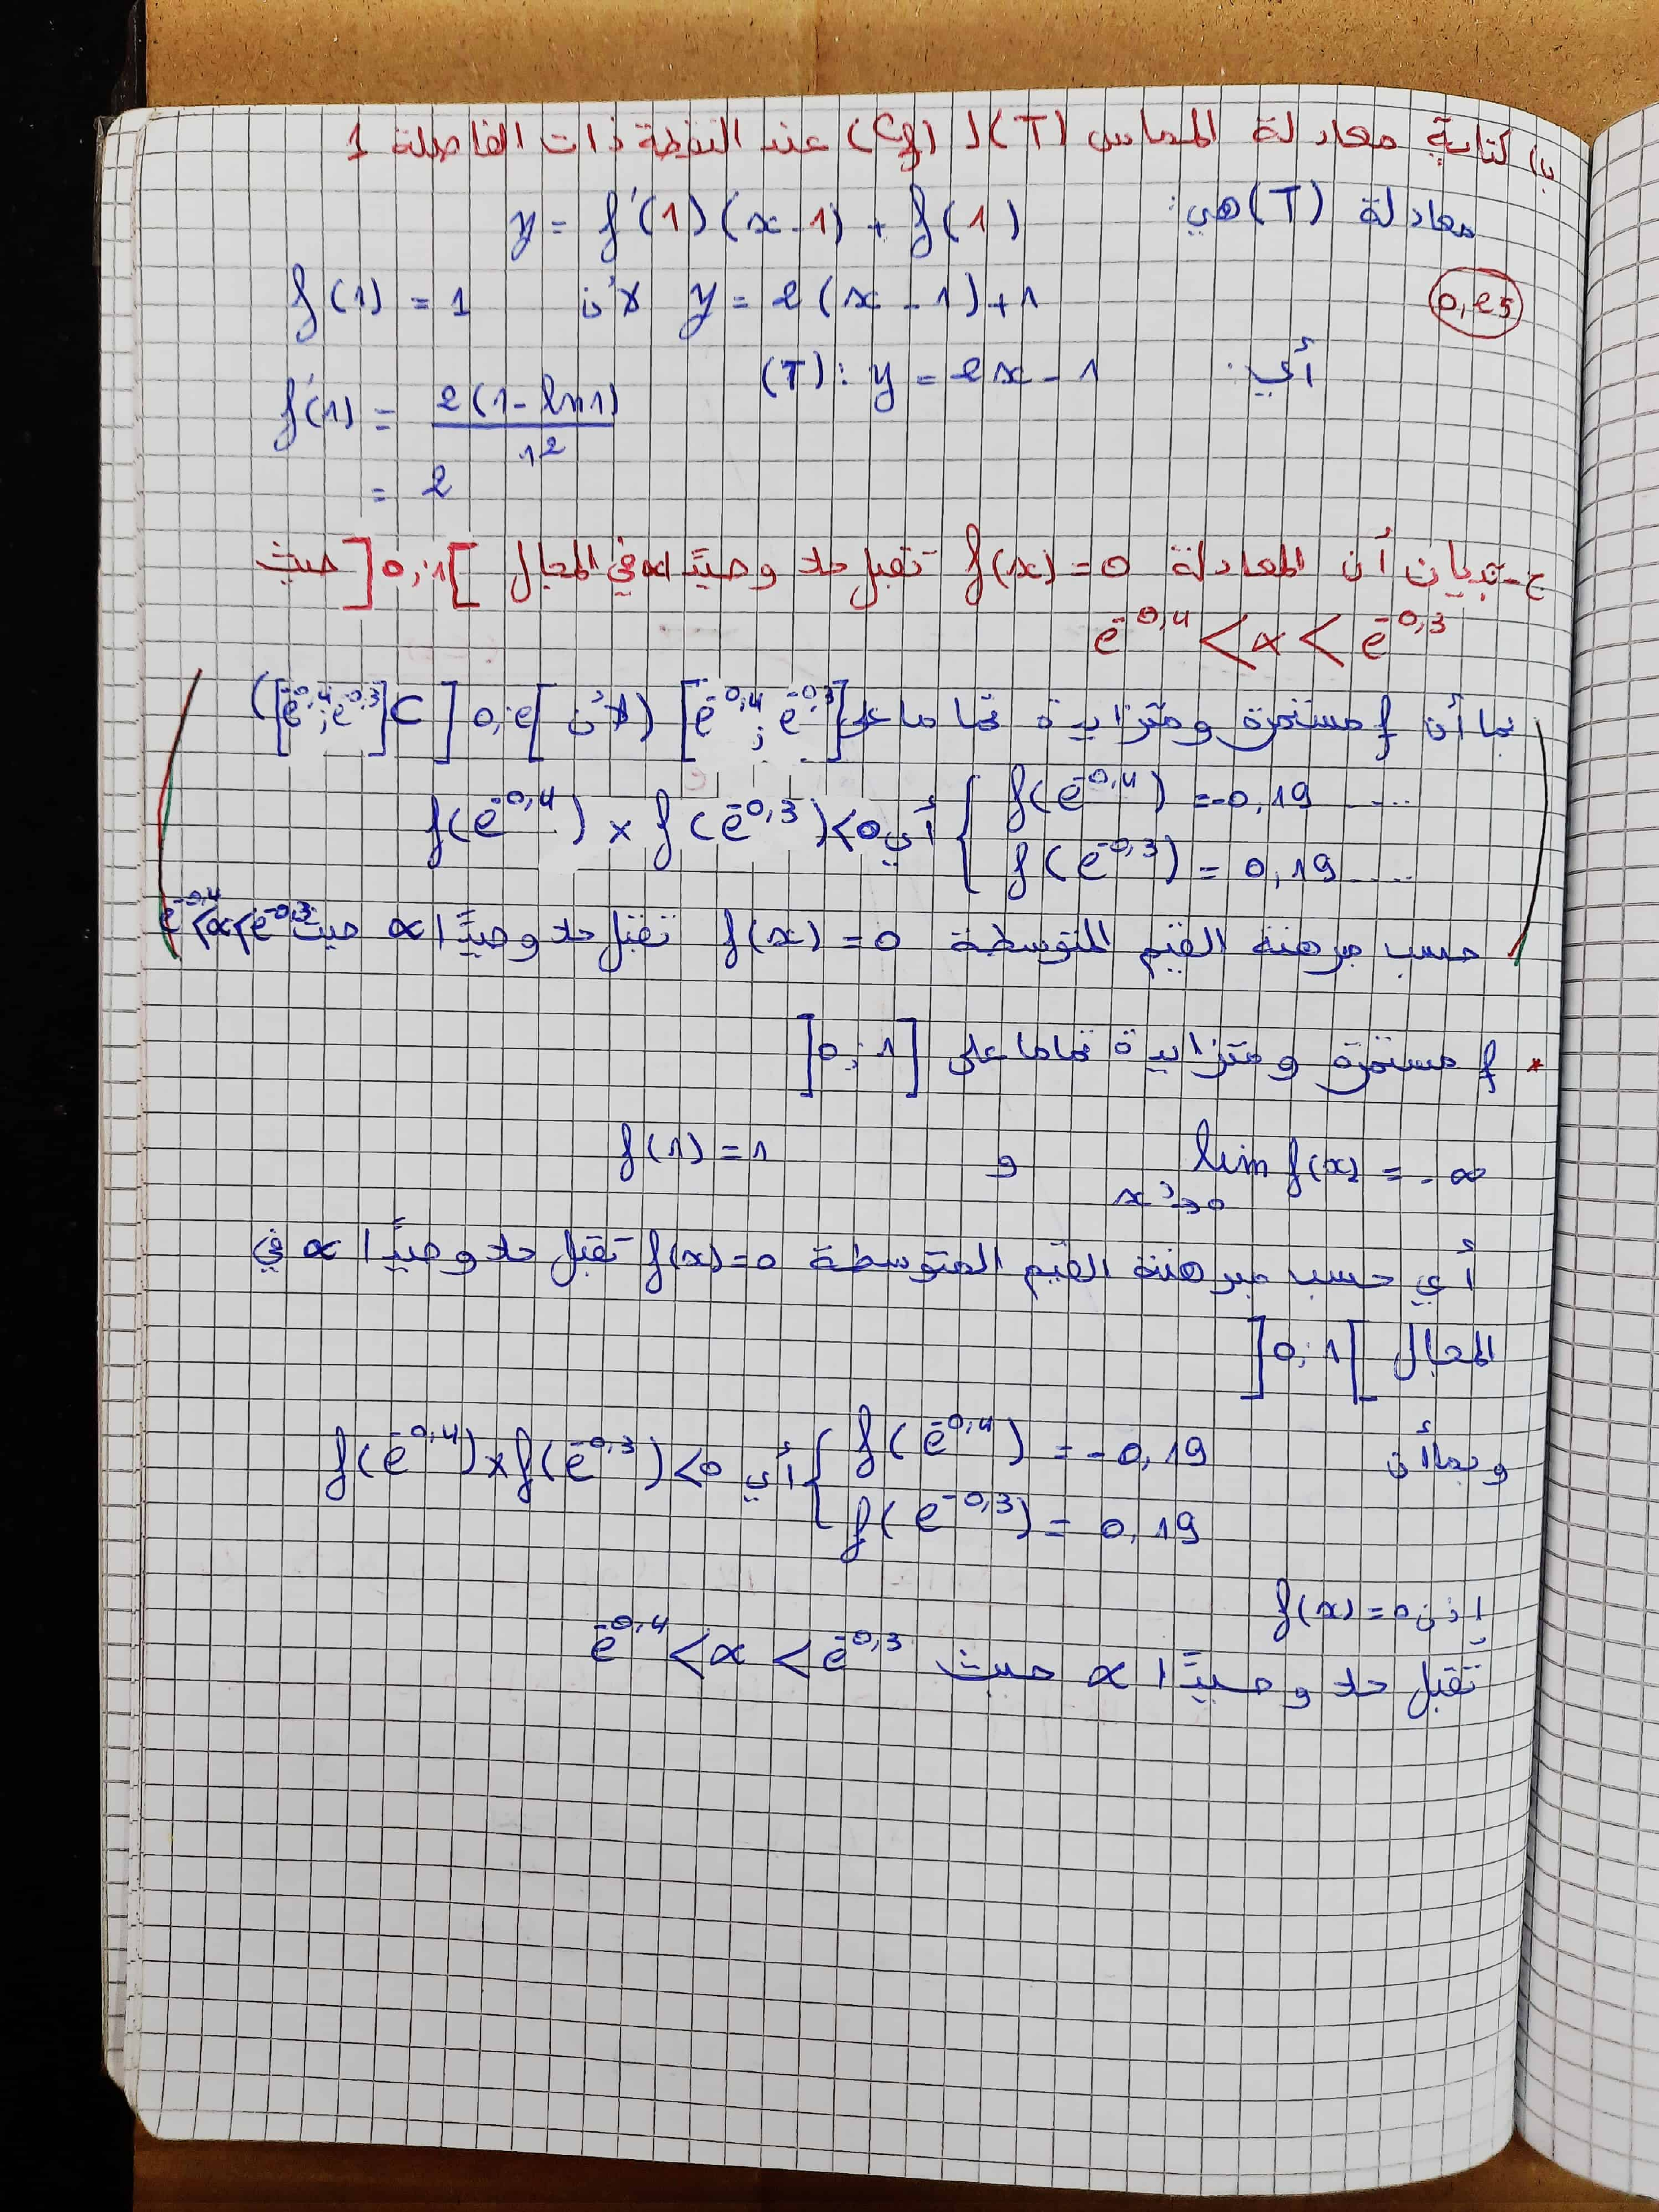 ب) كتابة معادلة المماس (T) لـ (Cf) عند النقطة ذات الفاصلة 1
معادلة (T) هي: y = f'(1)(x-1) + f(1)
0,25
y = 2(x-1)+1 لأن f(1) = 1
أي: (T): y = 2x-1
f'(1) = 2(1-ln1)/1²
= 2
ج- تبيان أن المعادلة f(x)=0 تقبل حلا وحيدًا α في المجال ]0;1[ حيث
e^-0,4 < α < e^-0,3
بما أن f مستمرة ومتزايدة تماما على [e^-0,4 ; e^-0,3] (لأن [e^-0,4 ; e^-0,3] ⊂ ]0;e[)
{ f(e^-0,4) = -0,19 .... أي f(e^-0,4) × f(e^-0,3) < 0
f(e^-0,3) = 0,19 ....
حسب مبرهنة القيم المتوسطة f(x) = 0 تقبل حلا وحيدًا α حيث e^-0,4 < α < e^-0,3
* f مستمرة ومتزايدة تماما على ]0;1]
lim f(x) = -∞ و f(1) = 1
x→0
أي حسب مبرهنة القيم المتوسطة f(x)=0 تقبل حلا وحيدًا α في
المجال ]0;1[
وبما أن { f(e^-0,4) = -0,19 أي f(e^-0,4) × f(e^-0,3) < 0
f(e^-0,3) = 0,19
إذن f(x) = 0
تقبل حلا وحيدًا α حيث e^-0,4 < α < e^-0,3